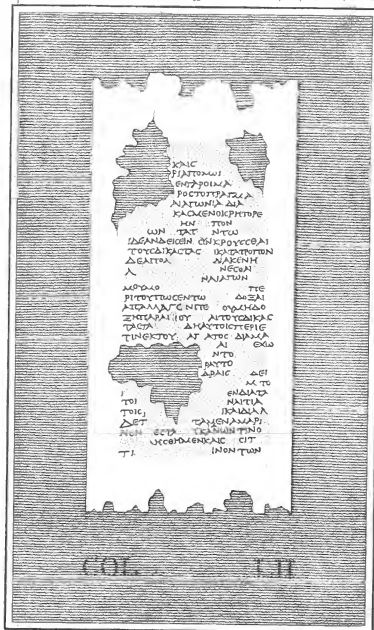 ΚΑΙC
ΡΙΑΠΟΜΩΙ
ΕΝΤΑΡΟΙΜΑ
ΡΟCΤΟΠΡΑΓΜΑ
ΑΓΩΝΙΑ ΔΙΑ
ΚΑCΜΕΝΟΙΚΡΗΤΟΡΕ
ΗΝ ΠΟΝ
ΩΝ ΤΑΤ ΝΤΩ
ΙΔΕΑΝΔΕΙCΕΙΝ CΥΝΚΡΟΥΕCΘΑΙ
ΤΟΥCΔΙΚΑCΤΑC ΙΚΑΤΑΤΡΟΠΩΝ
ΔΕΑΠΟΛ ΝΑΚΕΝΗ
Λ ΝΕCΩΝ
ΝΑΙΑΠΩΝ
ΜΟΥΜΟ ΠΕ
ΡΙΤΟΥΠΩCΕΝΤΩ ΔΟΞΑΙ
ΑΠΑΛΛΑΓC ΝΠΕ ΟΥΔΗΔΟ
ΖΗΠΑΡΑΙ ΙΟΥ ΑΙΤΟΥCΔΙΚΑC
ΤΑCΤΑ ΔΗΑΥΤΟΙCΠΕΡΙΕ
ΤΙΝΕΚΤΟΥ ΑΓ ΑΤΟC ΔΙΑΜΑ
ΑΙ ΕΧΩ
ΝΤΟ
ΡΑΥΤΟ
ΔΡΑΙC ΔΕΙ
Μ ΤΟ
Ι ΕΝΔΙΑΤΑ
ΤΟΙ ΝΑΙΤΙΑ
ΤΟΙC, ΙΚΑΙΔΙΑΛ
ΔΕΤ ΤΑΜΕΝΑΜΑΡΙ
ΝΟΝ ΕCΤΑ ΤΚΑΝΩΝΤΙΝΟ
ΗCΘΗΜΕΝΚΑΙC CΙΤ
ΤΙ ΙΝΟΝΤΩΝ
COL LII